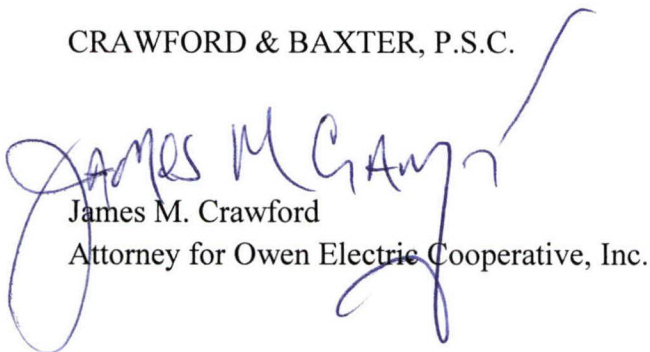 CRAWFORD & BAXTER, P.S.C.
James M
James M. Crawford
Attorney for Owen Electric Cooperative, Inc.